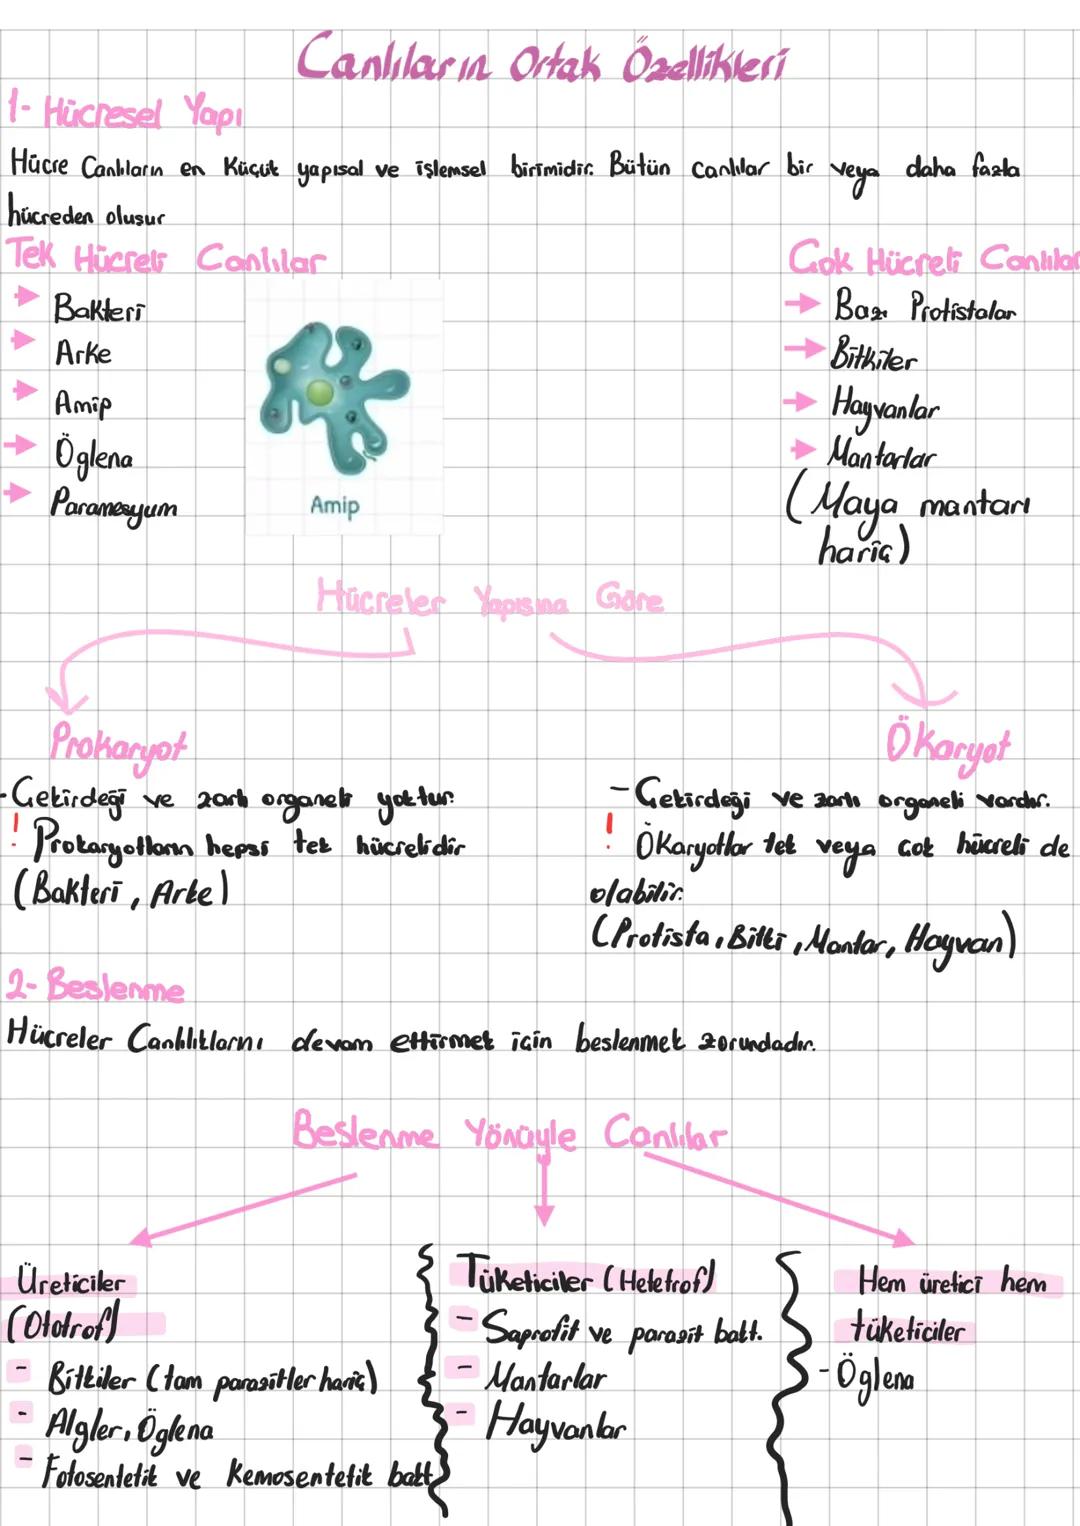 Canlıların Ortak Özellikleri
1- Hücresel Yapı
Hücre Canlıların en Küçük yapısal ve işlemsel birimidir. Bütün canlılar bir veya daha fazla
hücreden oluşur
Tek Hücreli Canlılar
Bakteri
Arke
Amip
Öglena
Paramesyum
Amip
Çok Hücreli Canlılar
Bazı Protistalar
Bitkiler
Hayvanlar
Mantarlar
(Maya mantarı
hariç)
Hücreler Yapısına Göre
Prokaryot
- Çekirdeği ve zarlı organeli yoktur.
! Prokaryotların hepsi tek hücrelidir
(Bakteri, Arke)
Ökaryot
- Çekirdeği ve zarlı organeli vardır.
! Ökaryotlar tek veya çok hücreli de
olabilir.
(Protista, Bitki, Mantar, Hayvan)
2- Beslenme
Hücreler Canlılıklarını devam ettirmek için beslenmek zorundadır.
Beslenme Yönüyle Canlılar
Üreticiler
(Ototrof)
- Bitkiler (tam parazitler hariç)
- Algler, Öglena
- Fotosentetik ve Kemosentetik bakt.
Tüketiciler (Hetetrof)
- Saprofit ve parazit bakt.
- Mantarlar
- Hayvanlar
Hem üretici hem
tüketiciler
- Öglena